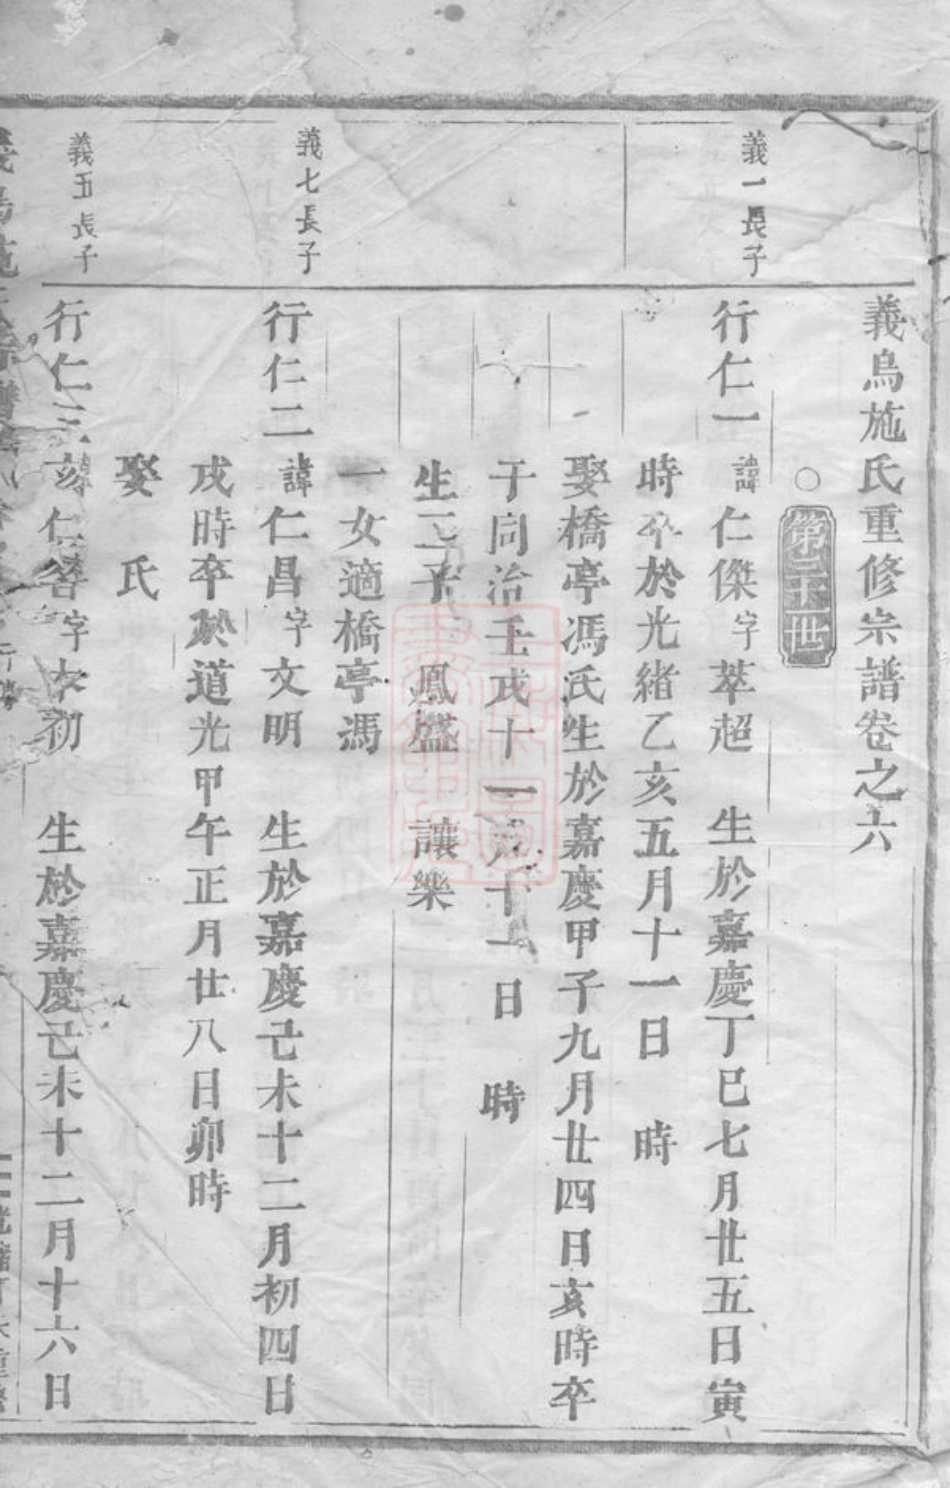 義烏施氏重修宗譜卷之六
第二十世
義一長子
行仁一諱仁傑字萃超 生於嘉慶丁巳七月廿五日寅
時卒於光緒乙亥五月十一日 時
娶橋亭馮氏生於嘉慶甲子九月廿四日亥時卒
于同治壬戌十一月十一日 時
生二子 鳳盛 讓樂
一女適橋亭馮
義七長子
行仁二諱仁昌字文明 生於嘉慶己未十二月初四日
戌時卒於道光甲午正月廿八日卯時
娶 氏
義五長子
行仁三諱仁 字 初 生於嘉慶己未十二月十六日